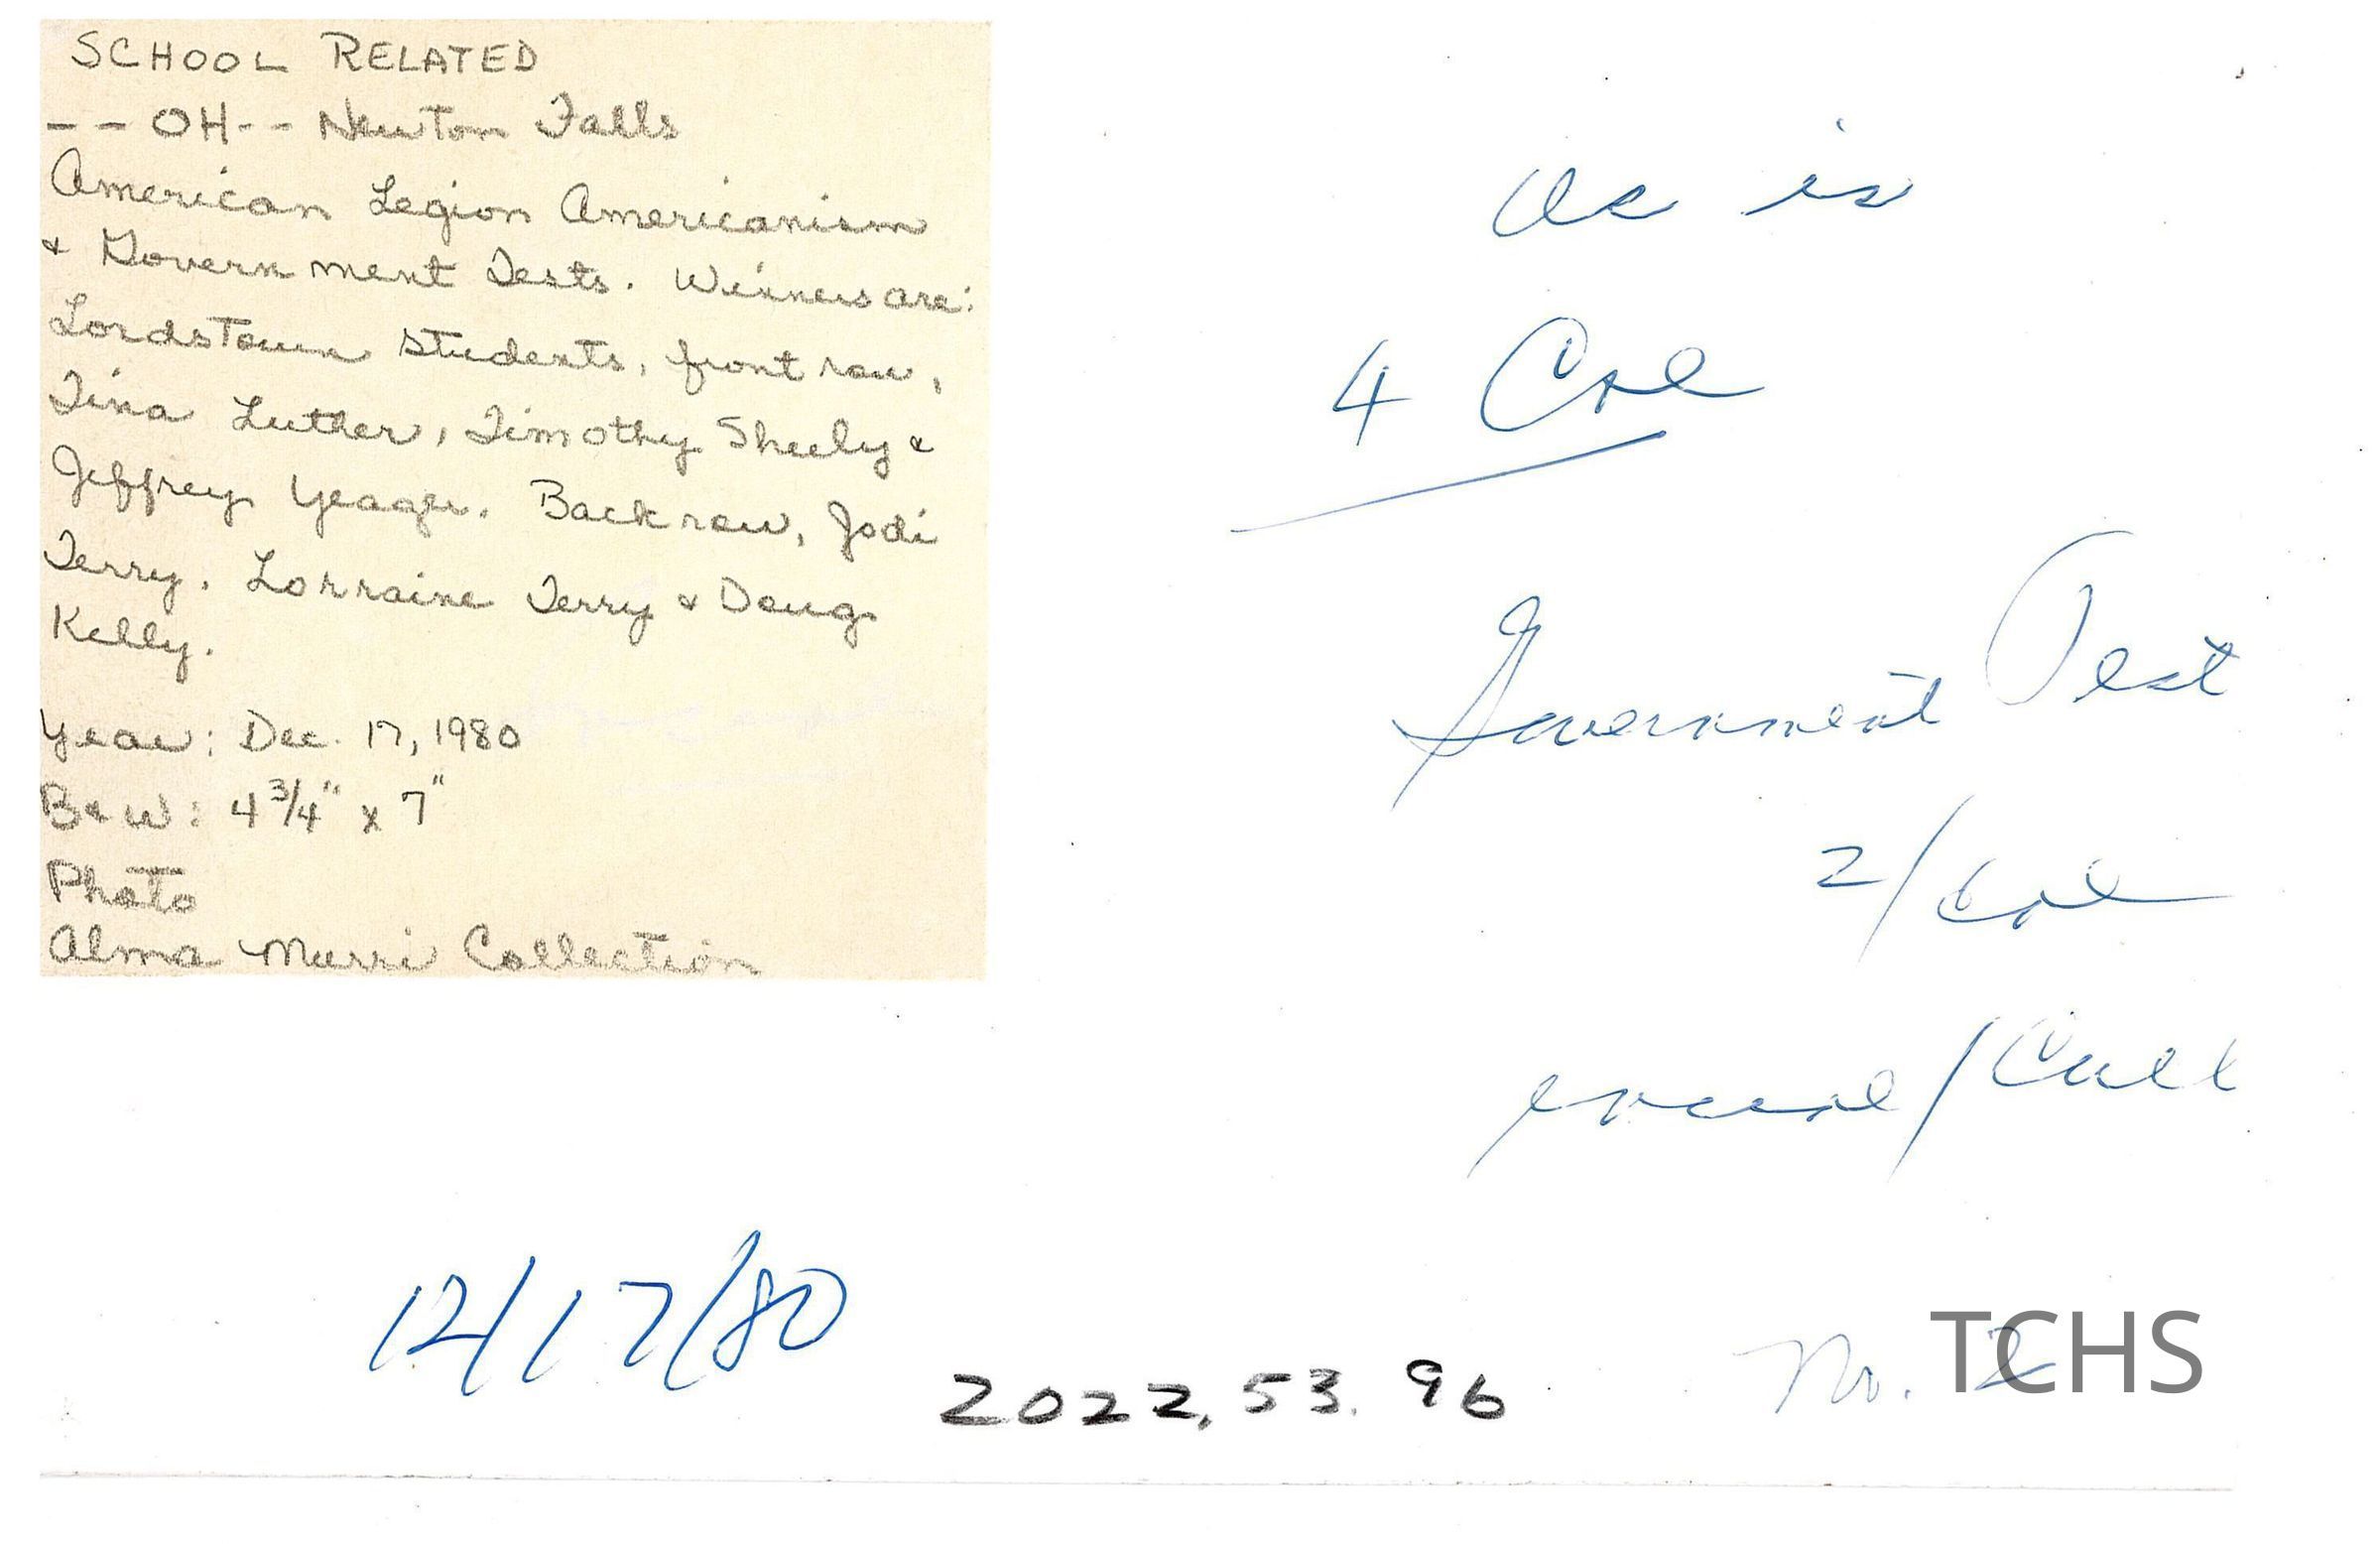 SCHOOL RELATED
-- OH -- Newton Falls
American Legion Americanism
& Government Tests. Winners are:
Lordstown students, front row,
Tina Luther, Timothy Sheely &
Jeffrey Yeager. Back row, Jodi
Terry, Lorraine Terry & Doug
Kelly.
Year: Dec. 17, 1980
B & W: 4 3/4" x 7"
Photo
Alma Murri Collection
as is
4 Col
Government Test
2/Col
12/17/80
2022.53.96
No. 2
TCHS